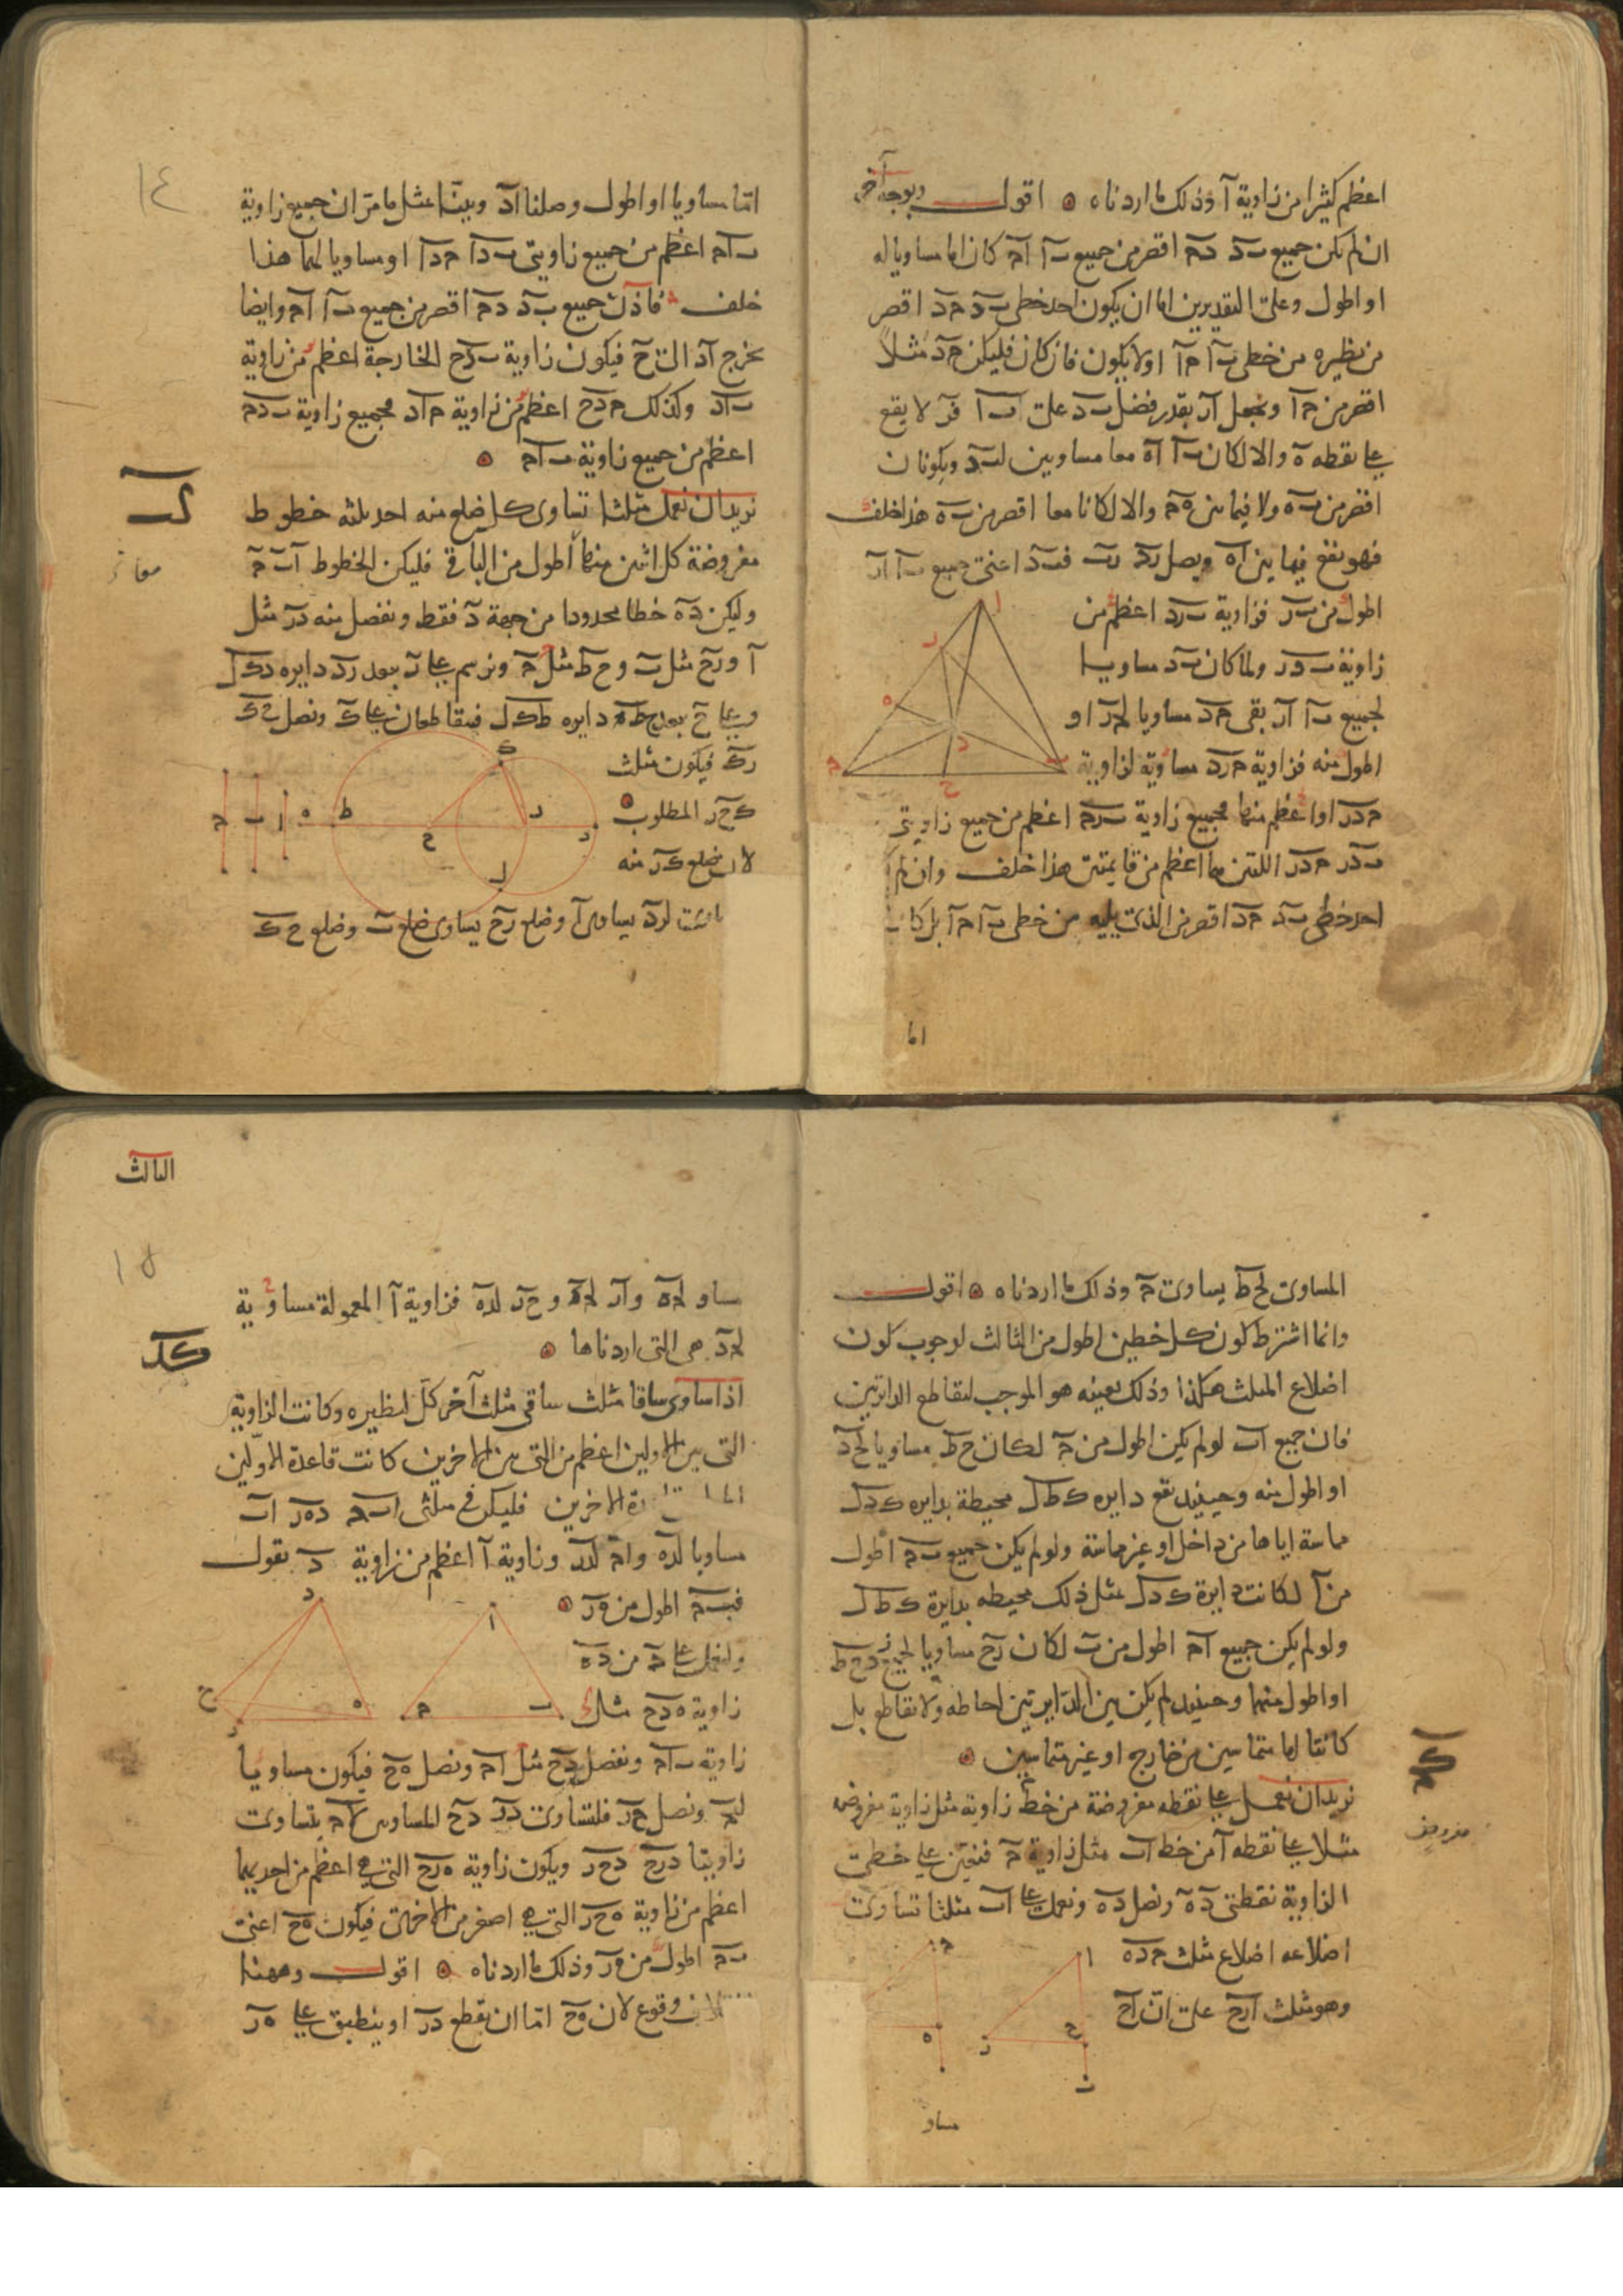 اعظم كثيرا من زاوية آ وذلك ما اردناه اقول وبوجه آخر
ان لم يكن جميع ب د د ح اقصر من جميع ب ا ا ح كان اما مساويا له
او اطول وعلى التقديرين اما ان يكون احد خطي ب د ح د اقصر
من نظيره من خطي ب ا ح ا او لا يكون فان كان فليكن ح د مثلا
اقصر من ح ا ونجعل ا ر بقدر فضل ب د على ا ب فر لا يقع
على نقطه ه والا لكان ب ا ا ه معا مساويين لب د ويكونان
اقصر من ب ه ولا فيما بين ه ح والا لكانا معا اقصر من ب ه هذا خلف
فهو يقع فيما بين ا ه ويصل ر د ر ب فب د اعنى جميع ب ا ا ر
اطول من ب ر فزاوية ب ر د اعظم من
زاوية ب د ر ولما كان ب د مساويا
لجميع ب ا ا ر بقى ح د مساويا لح ر او
اطول منه فزاوية ح ر د مساوية لزاوية
ح د ر او اعظم منها فجميع زاوية ب ر ح اعظم من جميع زاويتي
ب د ر ح د ر اللتين هما اعظم من قايمتين هذا خلف وان لم
احد خطي ب د ح د اقصر من الذى يليه من خطي ب ا ح ا بل كان
اما
١٤
اما مساويا او اطول وصلنا ا د وبينا بمثل ما مر ان جميع زاوية
ب ا ح اعظم من جميع زاويتي ب د ا ح د ا او مساويا لهما هذا
خلف فاذن جميع ب د د ح اقصر من جميع ب ا ا ح وايضا
نخرج ا د الى ح فيكون زاوية ب د ح الخارجة اعظم من زاوية
ب ا د وكذلك ح د ح اعظم من زاوية ح ا د فجميع زاوية ب د ح
اعظم من جميع زاوية ب ا ح
كب
نريد ان نعمل مثلثا تساوى كل ضلع منه احد ثلثه خطوط
مفروضة كل اثنين منها اطول من الباقي فليكن الخطوط ا ب ح
معا
وليكن د ه خطا محدودا من جهة د فقط ونفصل منه د ر مثل
ا و ر ح مثل ب و ح ط مثل ح ونرسم على ر ببعد ر د دايره د ك ل
وعلى ح ببعد ح ط دايره ط ك ل فيتقاطعان على ك ونصل ح ك
ر ك فيكون مثلث
ك ح ر المطلوب
لان ضلع ك ر منه
لر د يساوى ا وضلع ر ح يساوى ضلع ب وضلع ح ك
المساوى لح ط يساوى ح وذلك ما اردناه اقول
وانما اشترط كون كل خطين اطول من الثالث لوجوب كون
اضلاع المثلث هكذا وذلك بعينه هو الموجب لتقاطع الدايرتين
فان جميع ا ب لو لم يكن اطول من ح لكان ح ط مساويا لح د
او اطول منه وحينيذ تقع دايره ك ط ل محيطة بدايره ك د ل
مماسة اياها من داخل او غير مماسة ولو لم يكن جميع ب ح اطول
من ا لكانت دايرة ك د ل بمثل ذلك محيطه بدايرة ك ط ل
ولو لم يكن جميع ا ح اطول من ب لكان ر ح مساويا لجميع ر د ح ط
او اطول منهما وحينيذ لم يكن بين الدايرتين احاطه ولا تقاطع بل
كانتا اما متماسين من خارج او غير متماسين
كح
نريد ان نعمل على نقطه مفروضة من خط زاوية مثل زاوية مفروضه
مفروض
مثلا على نقطه ا من خط ا ب مثل زاوية ح فنعين على خطى
الزاوية نقطتى د ه ونصل د ه ونعمل على ا ب مثلثا تساوى
اضلاعه اضلاع مثلث ح د ه
وهو مثلث ا ر ح على ان ا ح
مساو
الثالث
١٥
مساو لح ه و ا ر لح د و ح ر لد ه فزاوية ا المعمولة مساوية
لح وهى التى اردناها
كد
اذا ساوى ساقا مثلث ساقى مثلث آخر كل لنظيره وكانت الزاوية
التى بين الاولين اعظم من التى بين الاخرين كانت قاعدة الاولين
الاخرين فليكن فى مثلثى ا ب ح د ه ر ا ب
مساويا لد ه و ا ح لد ر وزاوية ا اعظم من زاوية د نقول
فب ح اطول من ه ر
ولنعمل على د من د ه
زاوية ه د ح مثل
زاوية ب ا ح ونفصل د ح مثل ا ح ونصل ه ح فيكون مساويا
لب ح ونصل ح ر فلتساوى د ر د ح المساوى لا ح يتساوى
زاويتا د ر ح د ح ر ويكون زاوية ه ر ح التى هى اعظم من احديهما
اعظم من زاوية ه ح ر التى هى اصغر من الاخرى فيكون ه ح اعنى
ب ح اطول من ه ر وذلك ما اردناه اقول وههنا
وقوع لان ه ح اما ان يقطع د ر او ينطبق على ه ر